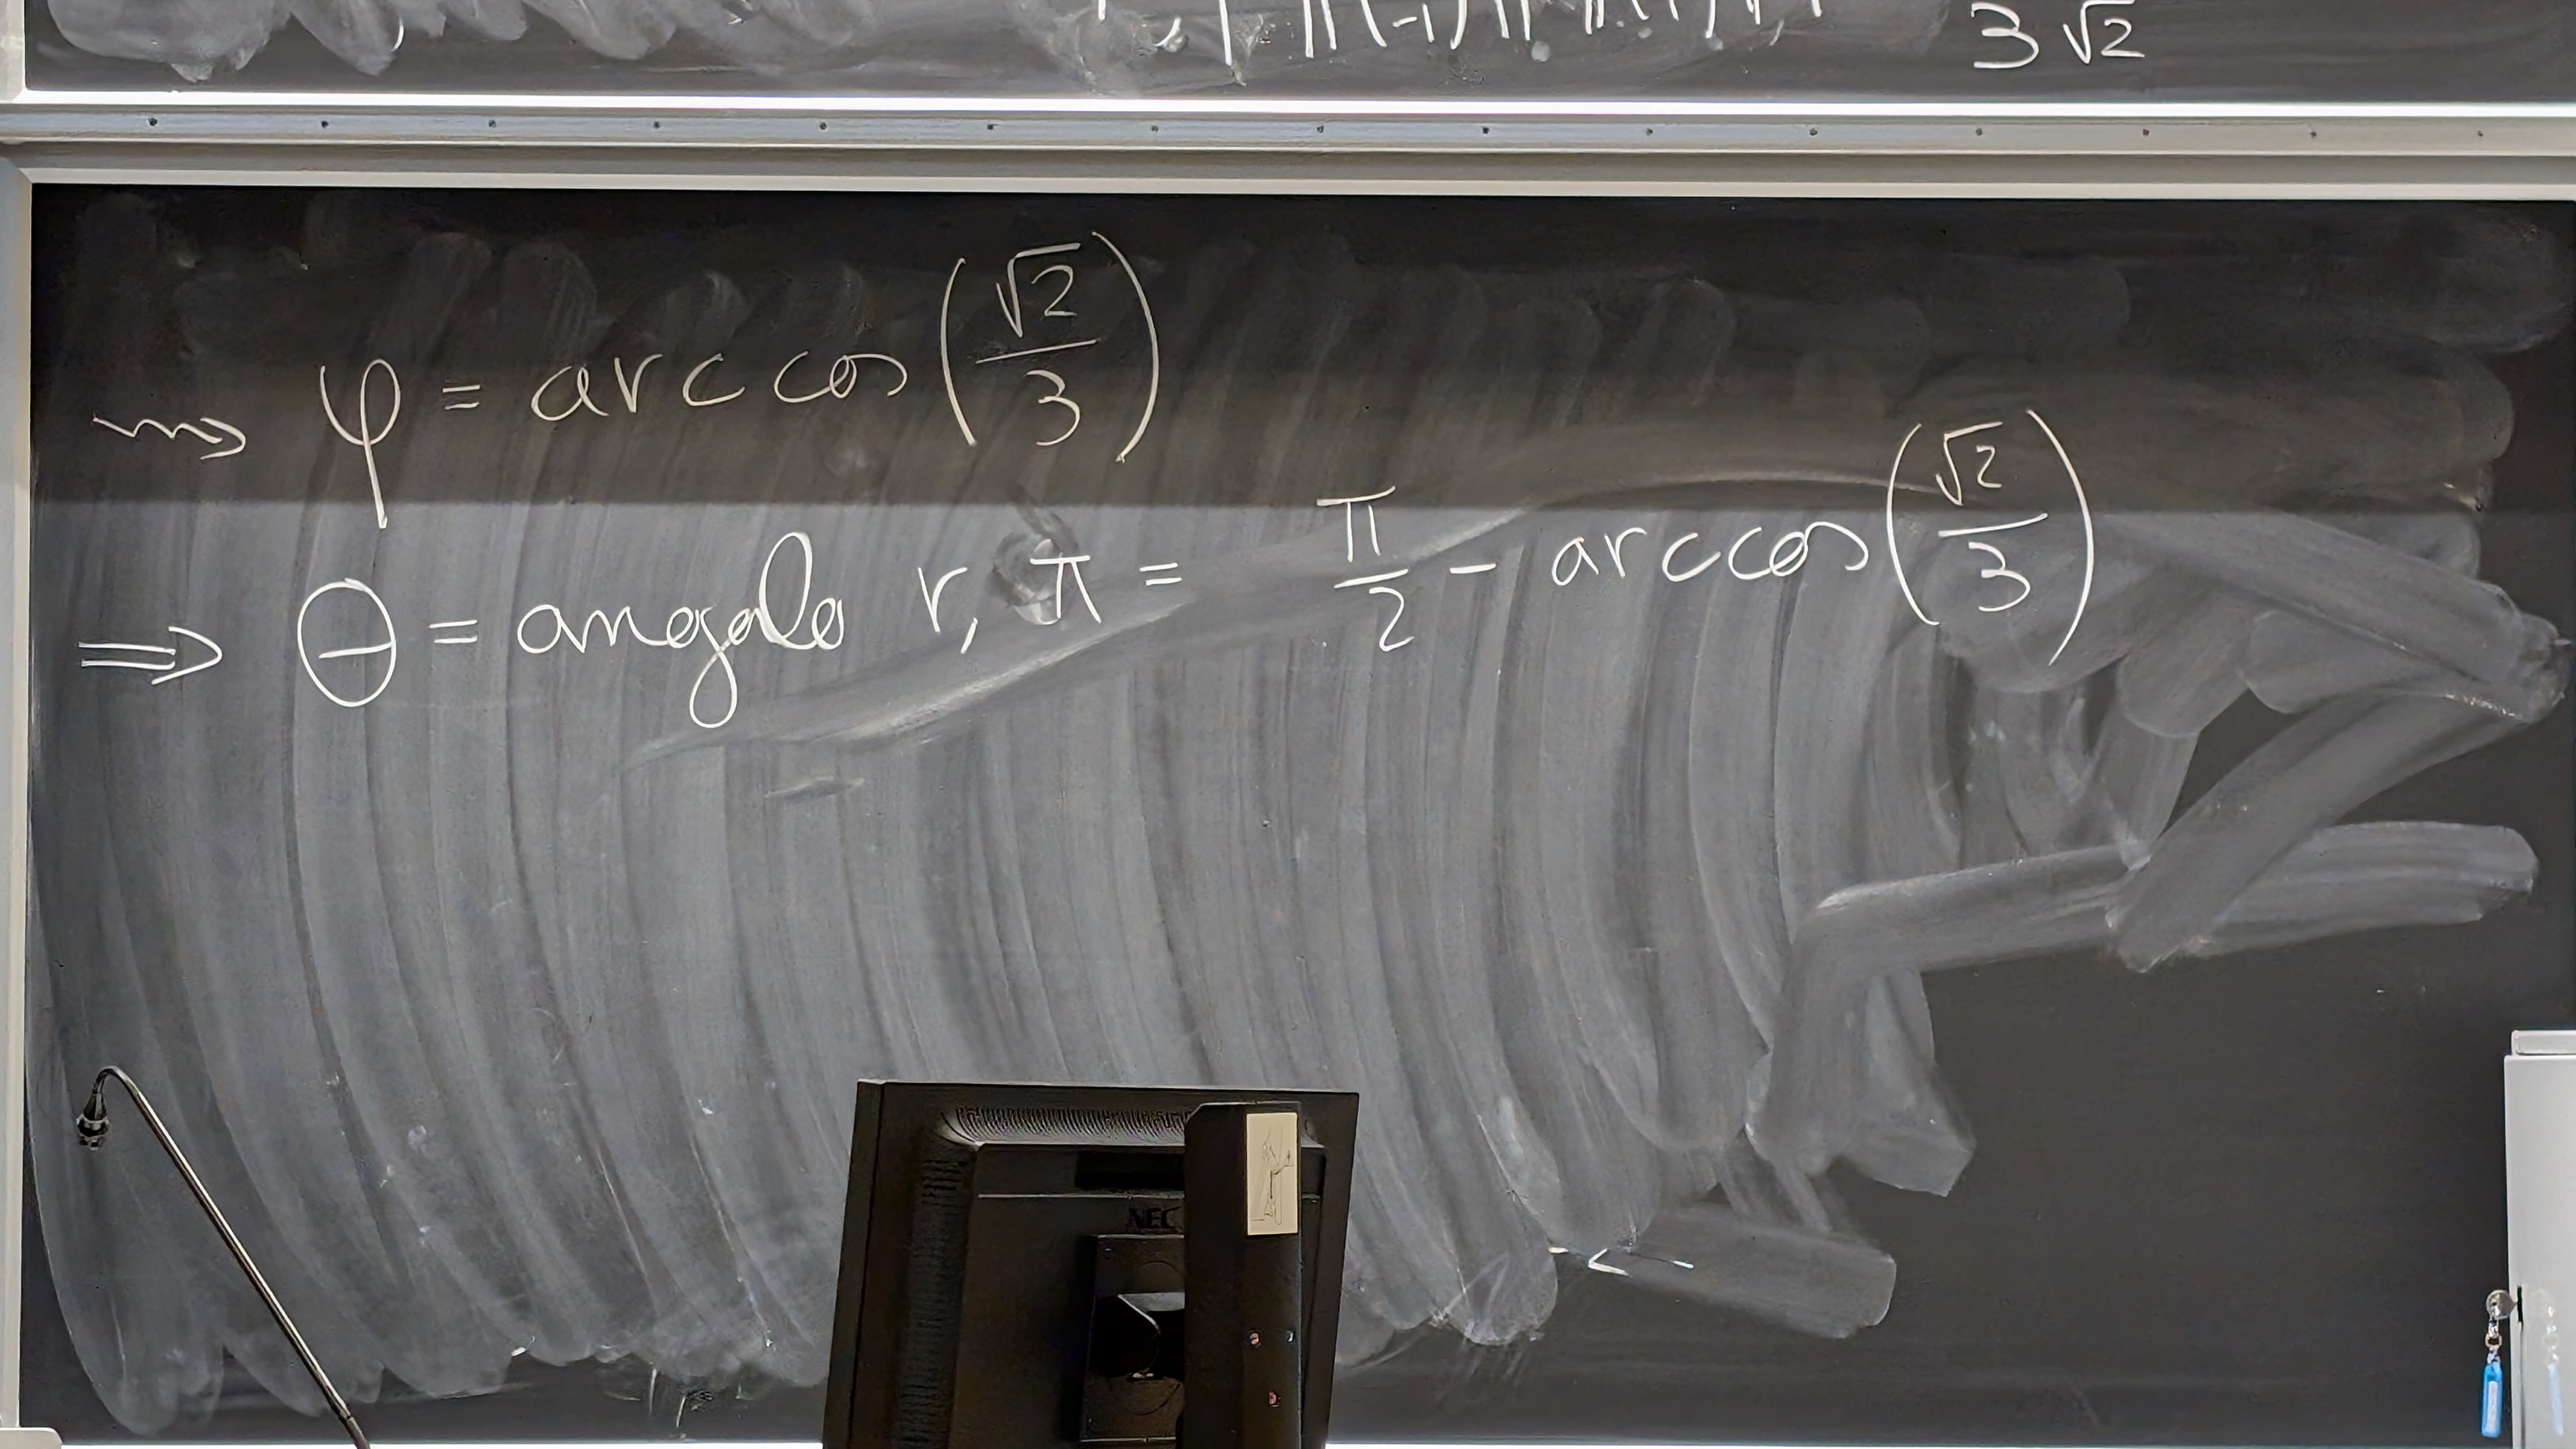 3 √2
⟿ φ = arccos(√2/3)
⟹ θ = angolo r, π = π/2 - arccos(√2/3)
NEC